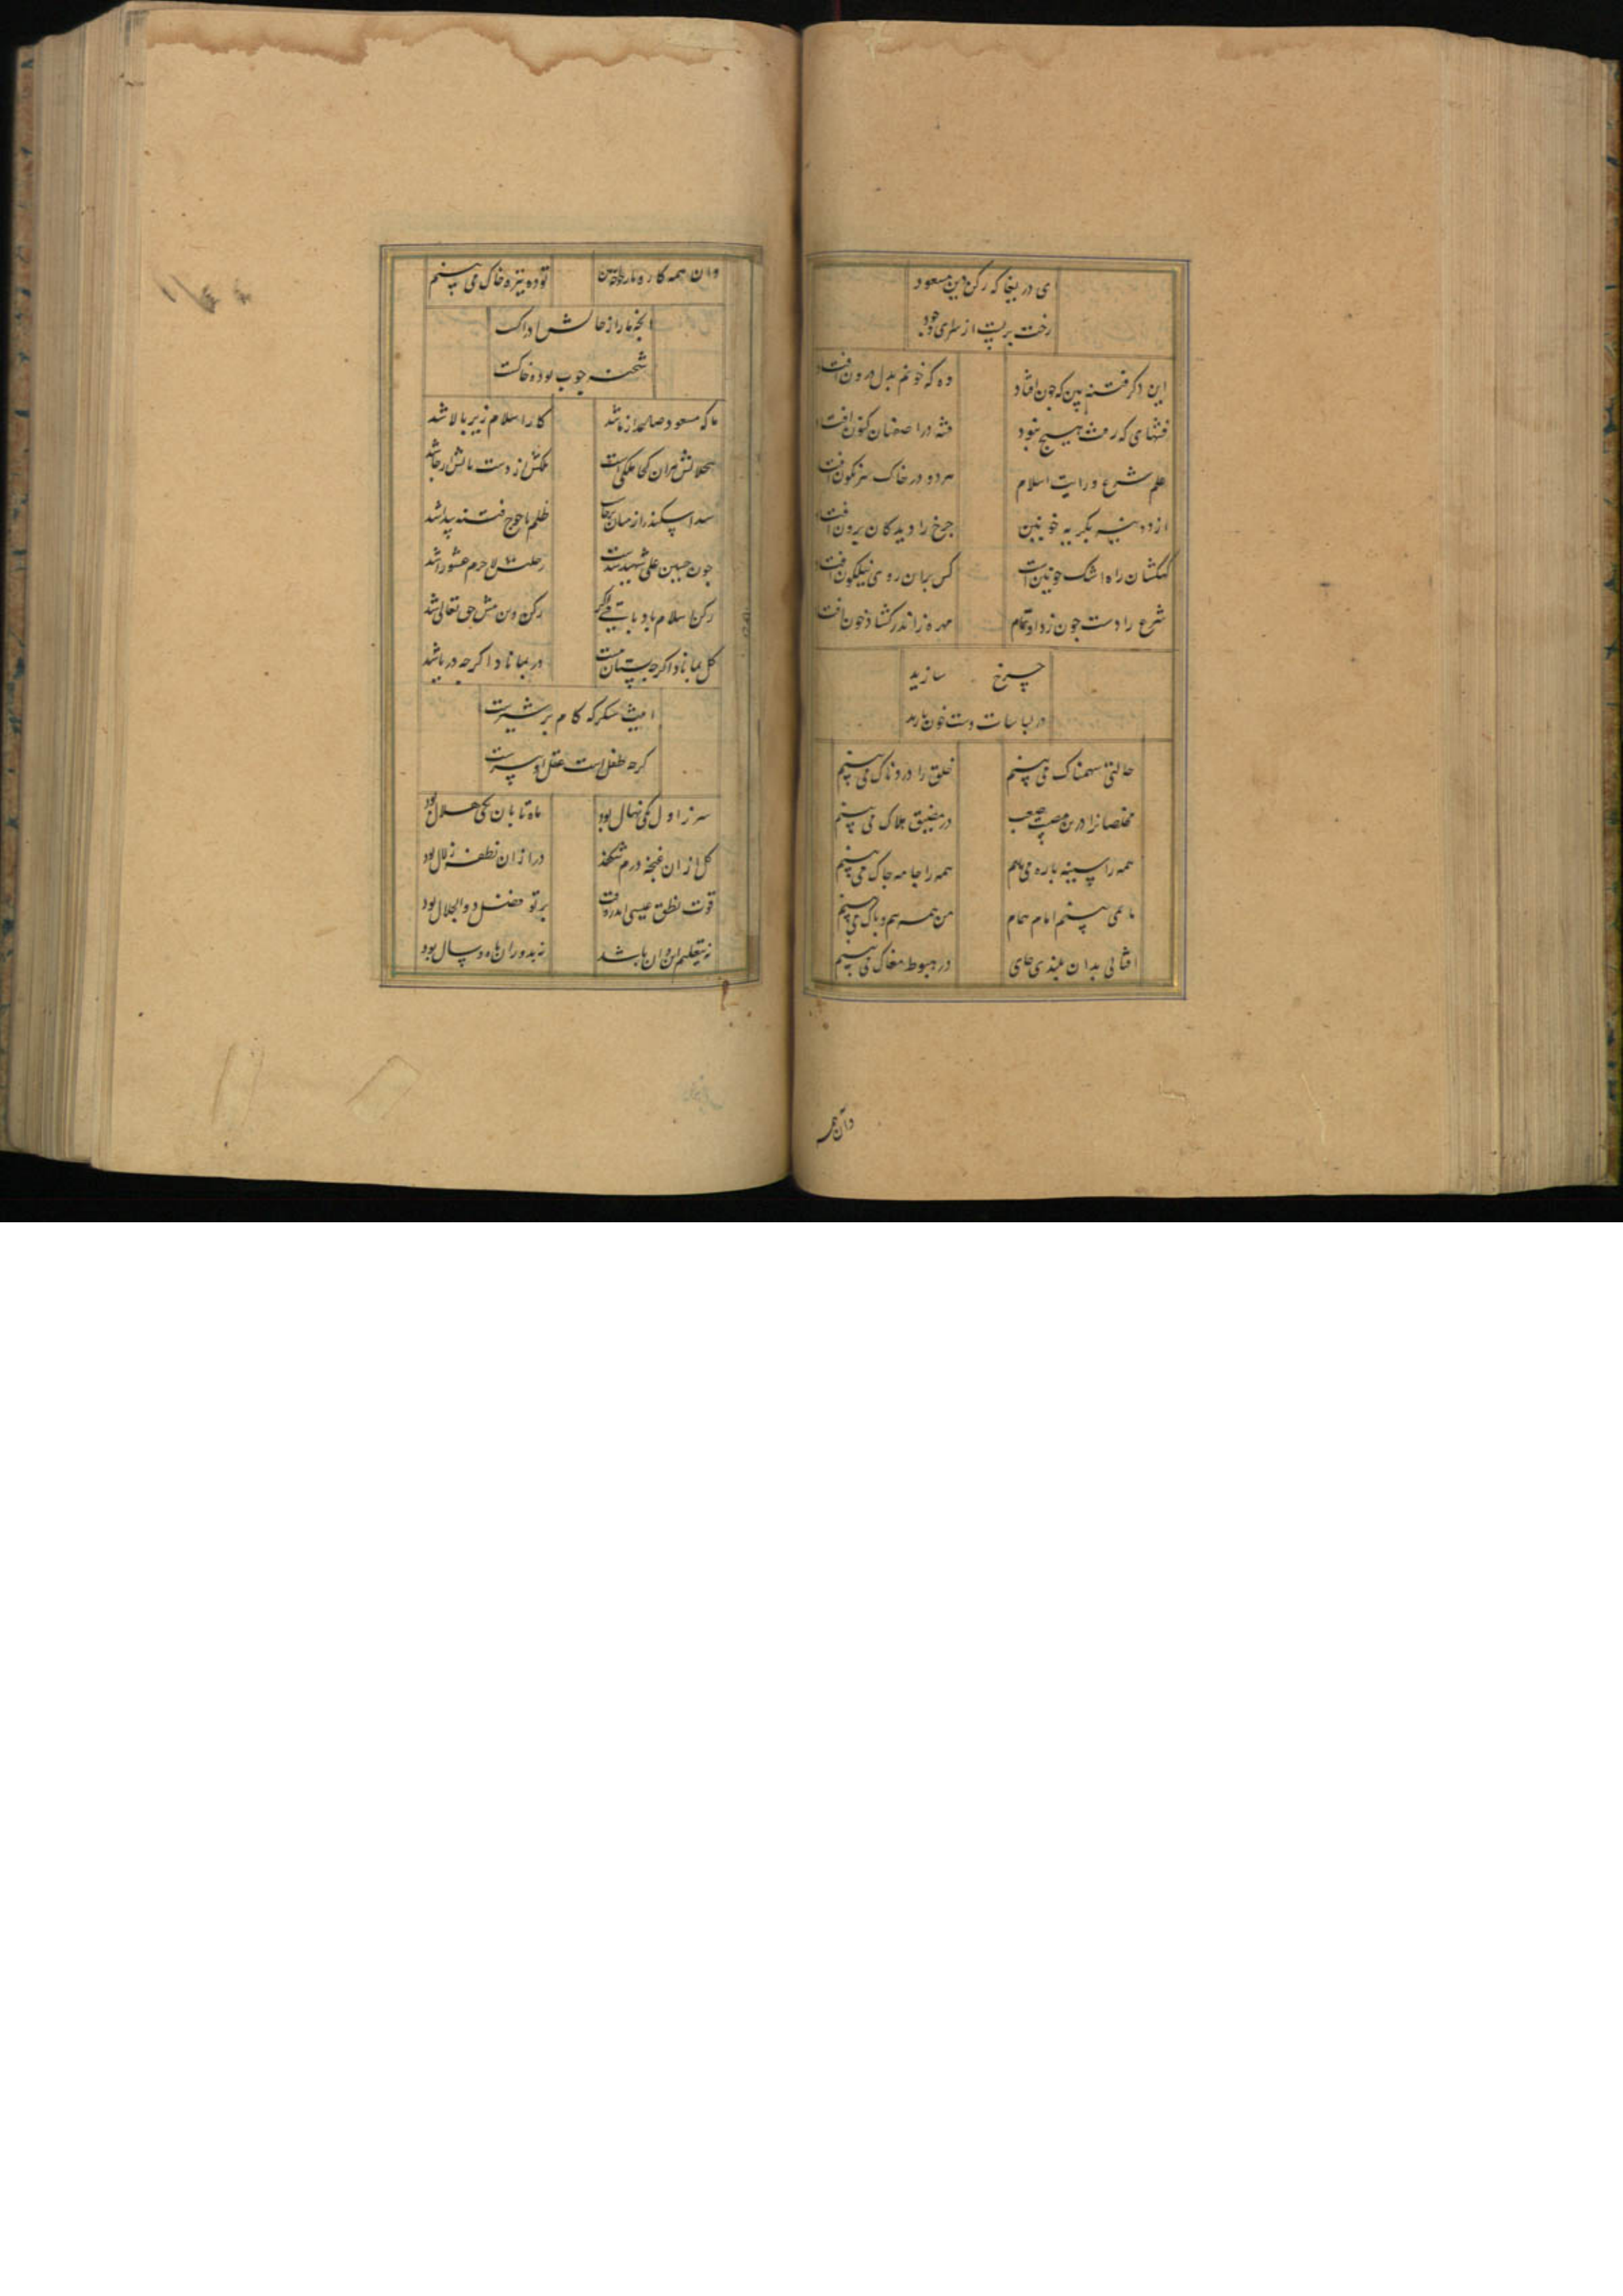 ی دریغا که رکن دین مسعود
رخت بربست از سرای وجود
این دکر فتنه بین که جون افتاد
وه که خونم بدل درون افتاد
فتنهای که هیچ نبود
فتنه در اصفهان کنون افتاد
علم شرع و رایت اسلام
هر دو در خاک سرنکون افتاد
از دو دیده بکریه خونین
جرخ را دیدکان برون افتاد
کهکشان راه اشک خونین است
کس بران روی نیلکون افتاد
شرع را دست جون زد او تمام
مهره زاندر کشاد خون افتاد
چرخ سازید
در باسات دست خون بارید
حالتی سهمناک می بینم
خلق را دردناک می بینم
مخلصانرا درین مصیبت صعب
در مضیق هلاک می بینم
همه را سینه باره می یابم
همه را جامه جاک می بینم
یا نمی بینم امام همام
من همی بینم و باک می بینم
افتابی بدان بلندی جای
در هبوط مغاک می بینم
وان همه
وان همه کار و بار
توده تیره خاک می بینم
انچه ما را از حالش ادراکست
شحنه جوب توده خاکست
تا که مسعود صاعد از ما شد
کار اسلام زیر بالا شد
ملکش از دست
سد اسکندر از میان برخاست
ظلم یاجوج فتنه پیدا شد
جون حسین علی شهید شدست
رحلتش لاجرم عشورا شد
رکن اسلام باد باقی اکر
رکن دین بیش حق تعالی شد
کل بماناد اکر جه بستان نیست
در بماناد اکر جه دریا شد
اینت شکر که کام بر شیرست
کرجه طفل است عقل او بیرست
سرو ز اول یکی نهال بود
ماه تابان یکی هلال بود
کل ازان غنجه درم شکفد
در ازان نطفه زلال بود
قوت نطق عیسی اندر وقت
برتو فضل ذوالجلال بود
نه بتعلیم این و ان باشد
نه بدوران ماه و سال بود